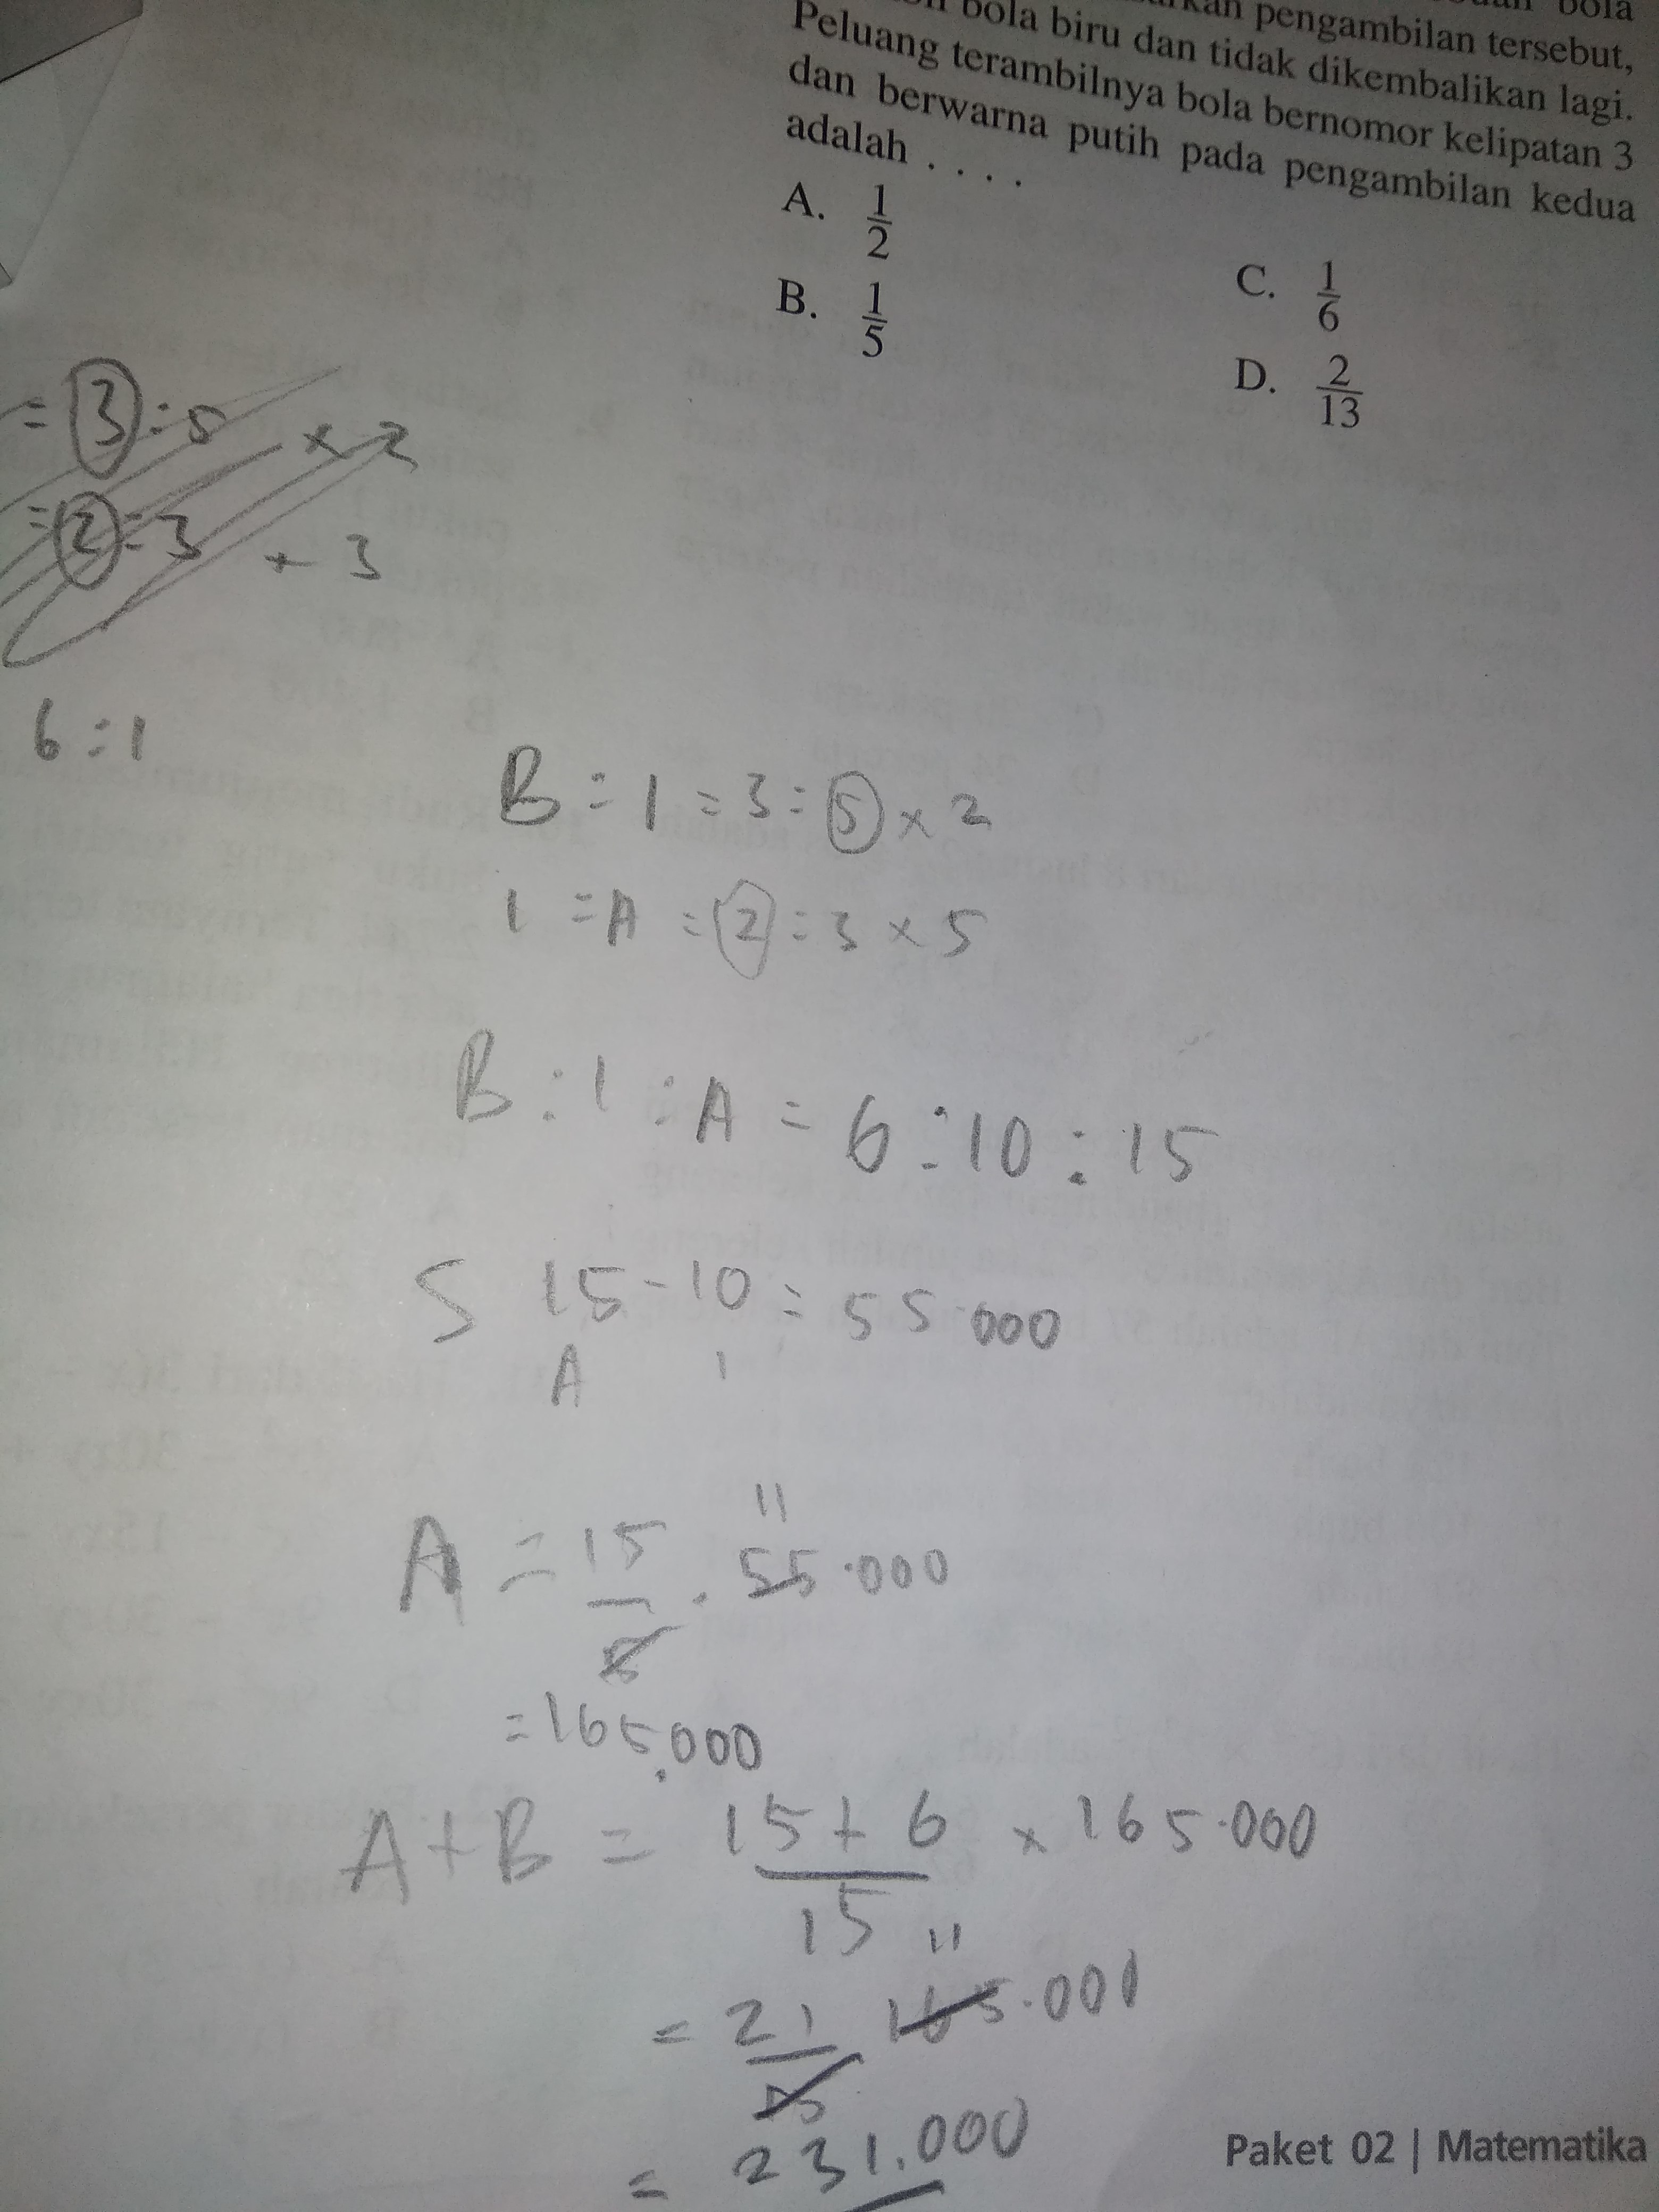 bola
pengambilan tersebut,
bola biru dan tidak dikembalikan lagi.
Peluang terambilnya bola bernomor kelipatan 3
dan berwarna putih pada pengambilan kedua
adalah . . . .
A. 1/2
B. 1/5
C. 1/6
D. 2/13
= 3 : 5 × 2
= 2 : 3 × 3
6 : 1
B : 1 = 3 : 5 × 2
1 : A = 2 : 3 × 5
B : 1 : A = 6 : 10 : 15
S 15 - 10 = 55.000
A 1
A = 15/5 . 55.000
11
= 165.000
A + B = 15 + 6 / 15 × 165.000
11
= 21/15 165.000
= 231.000
Paket 02 | Matematika